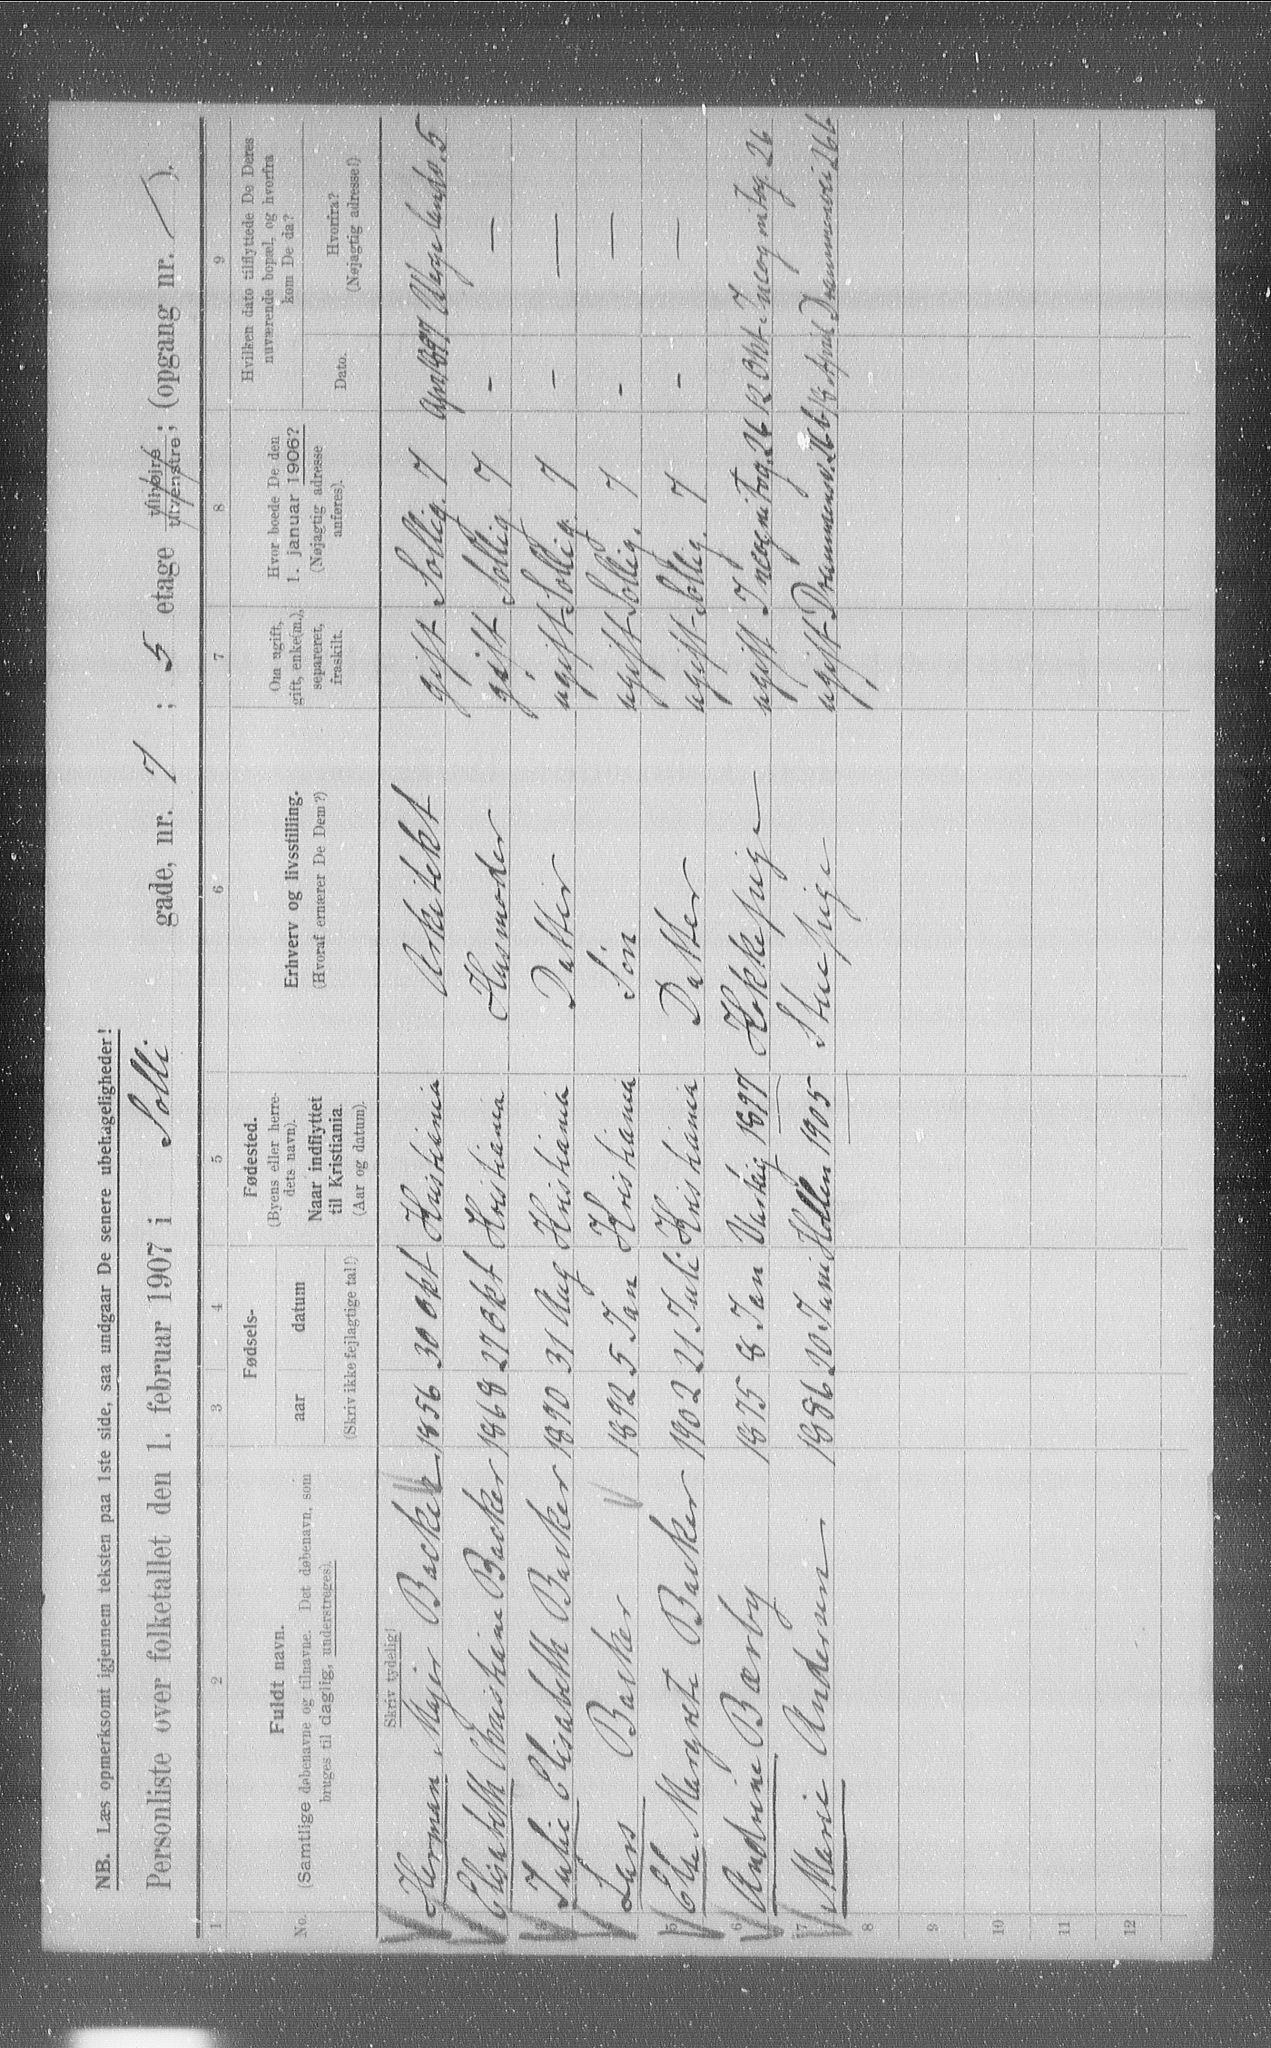 NB. Læs opmerksomt igjennem teksten paa 1ste side, saa undgaar De senere ubehageligheder!
Personliste over folketallet den 1. februar 1907 i Solli gade, nr. 7 ; 5 etage tilhøjre tilvenstre ; (opgang nr. — ).
1 2 3 4 5 6 7 8 9
No.
Fuldt navn.
(Samtlige døbenavne og tilnavne. Det døbenavn, som
bruges til daglig, understreges).
Fødsels-
aar datum
(Skriv ikke fejlagtige tal!)
Fødested.
(Byens eller herre-
dets navn).
Naar indflyttet
til Kristiania.
(Aar og datum).
Erhverv og livsstilling.
(Hvoraf ernærer De Dem?)
Om ugift,
gift, enke(m.),
separeret,
fraskilt.
Hvor boede De den
1. januar 1906?
(Nøjagtig adresse
anføres).
Hvilken dato tilflyttede De Deres
nuværende bopæl, og hvorfra
kom De da?
Dato.
Hvorfra?
(Nøjagtig adresse!)
Skriv tydelig!
Herman Major Backer 1856 30 Okt Kristiania Arkitekt gift Sollig. 7 April 1897 5
Elisabeth Christiane Backer 1868 27 Okt Kristiania Husmoder gift Sollig 7 - —
3 Julie Elisabeth Backer 1890 31 Aug Kristiania Datter ugift Sollig. 7 - —
Lars Backer 1892 5 Jan Kristiania Søn ugift Sollig. 7 - —
5 Ella Margrete Backer 1902 21 Juli Kristiania Datter ugift Sollig. 7 - —
6 Andrine Bærby 1875 8 Jan 1897 Kokkepige ugift Incognitog. 26 12 Okt Incognitog. 26
7 Marie Andersen 1886 20 Juni Hollen 1905 Stuepige ugift Drammensv. 26 b April Drammensvei 26 b
8
9
10
11
12